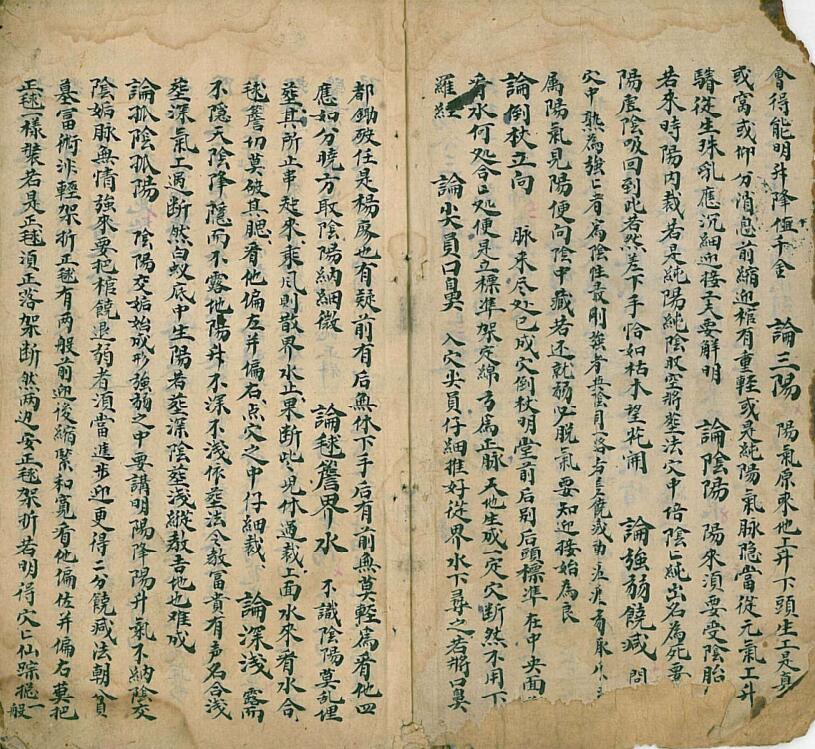 會得能明升降值千金　論三陽　陽氣原來地上升下頭生工是真
或窩或仰分消息前縮迎棺有重輕或是純陽氣脉隐當從元氣工升
騎從生珠乳應沉細迎接要解明　論陰陽　陽來須要受陰胎
若來時陽内裁若是純陽純陰敗空將塟法穴中培陰匕純出名為死要
陽虛陰吸回到此若然差下手恰如枯木望花開　論強弱饒减　問
穴中熟為強匕者為陰性最剛強者
属陽氣見陽便向陰中藏若还就弱必脱氣要知迎接始為良
論倒杖立向　脉来尽处已成穴倒杖明堂前后別后頭標準在中央面
看水何処合匕処便是立標準架定綿為正脉天地生成一定穴断然不用下
羅經　論尖員口臭　入穴尖員仔細推好從界水下尋之若將口臭
都鋤破任是楊房也有疑前有后無休下手后有前無莫輕為看他四
應如分曉方取陰陽納細微　論毬簷界水　不識陰陽莫乱埋
塟其所止串起來乘風則散界水止果断些兒休過裁上面水來看水合
毬簷切莫破其腮看他偏左并偏右点穴之中仔細裁　論深浅　露而
不隱天陰降隱而不露地陽升不深不浅依塟法令教富貴有声名合浅
塟深氣工過断然白蚁底中生陽若塟深陰塟浅縱教吉地也难成
論孤陰孤陽　陰陽交姤始成形強弱之中要講明陽降陽升氣不納陰交
陰姤脉無情強來要把棺饒退弱者須當進步迎更得二分饒减法朝貧
墓富術非輕架折正毬有两般前迎後縮緊和寬看他偏佐并偏右莫把
正毬一樣裝若是正毬須正落架断然两边安正毬架折若明得穴匕仙踪揔一般